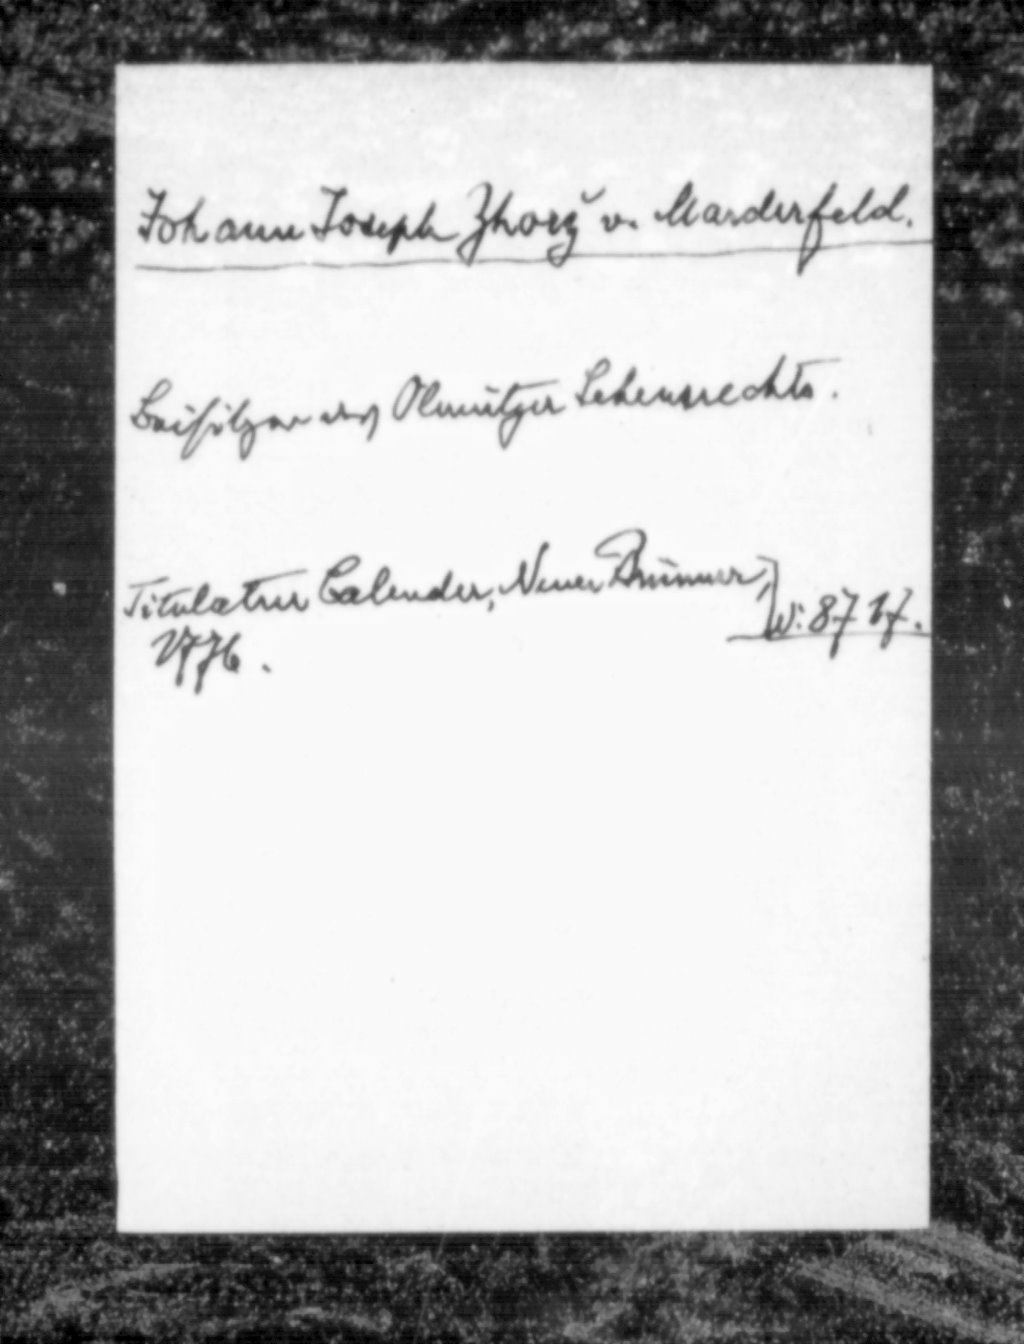 Johann Joseph Zhorž v. Marderfeld.
Beisitzer des Olmützer Lehensrechts.
Titulatur Calender, Neuer Brünner,
1776. W: 87 17.